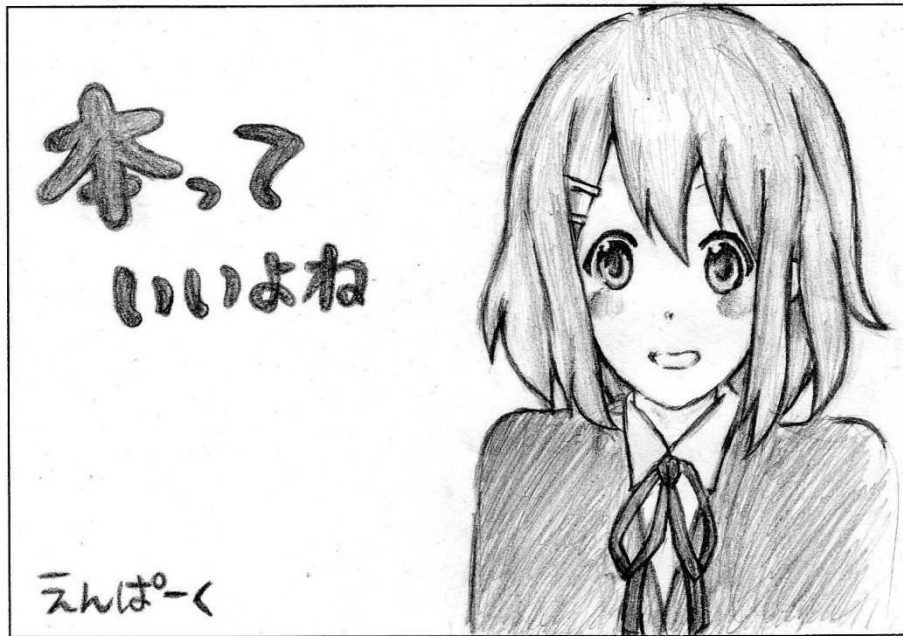 本って
いいよね
えんぱーく